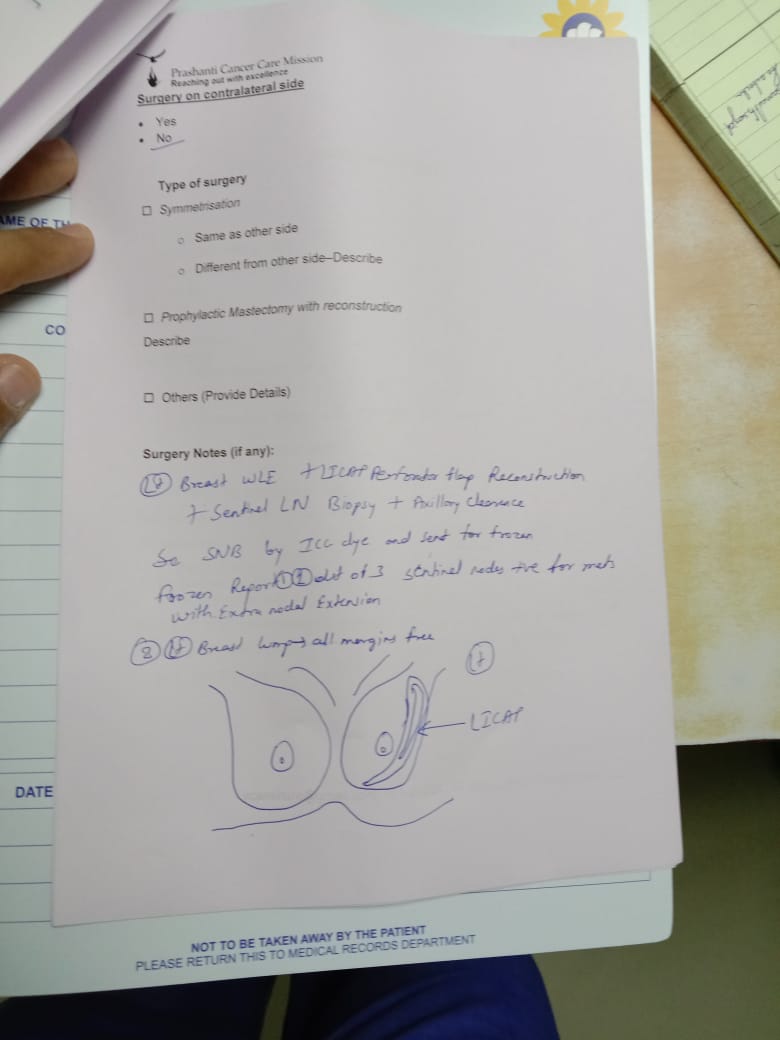 Prashanti Cancer Care Mission
Reaching out with excellence
Surgery on contralateral side
• Yes
• No
Type of surgery
☐ Symmetrisation
○ Same as other side
○ Different from other side–Describe
☐ Prophylactic Mastectomy with reconstruction
Describe
☐ Others (Provide Details)
Surgery Notes (if any):
Lt Breast WLE + LICAP Perforator flap Reconstruction
+ Sentinel LN Biopsy + Axillary Clearance
SNB by ICG dye and sent for frozen
frozen Report ① out of 3 sentinel nodes +ve for mets
with Extra nodal Extension
② Lt Breast lump → all margins free
Lt
LICAP
AME OF TH
CO
DATE
NOT TO BE TAKEN AWAY BY THE PATIENT
PLEASE RETURN THIS TO MEDICAL RECORDS DEPARTMENT